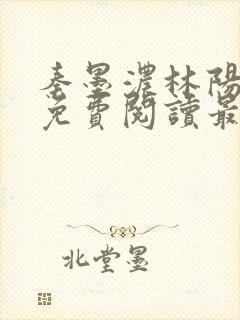 秦墨濃林陽
免費閱讀最
北堂墨